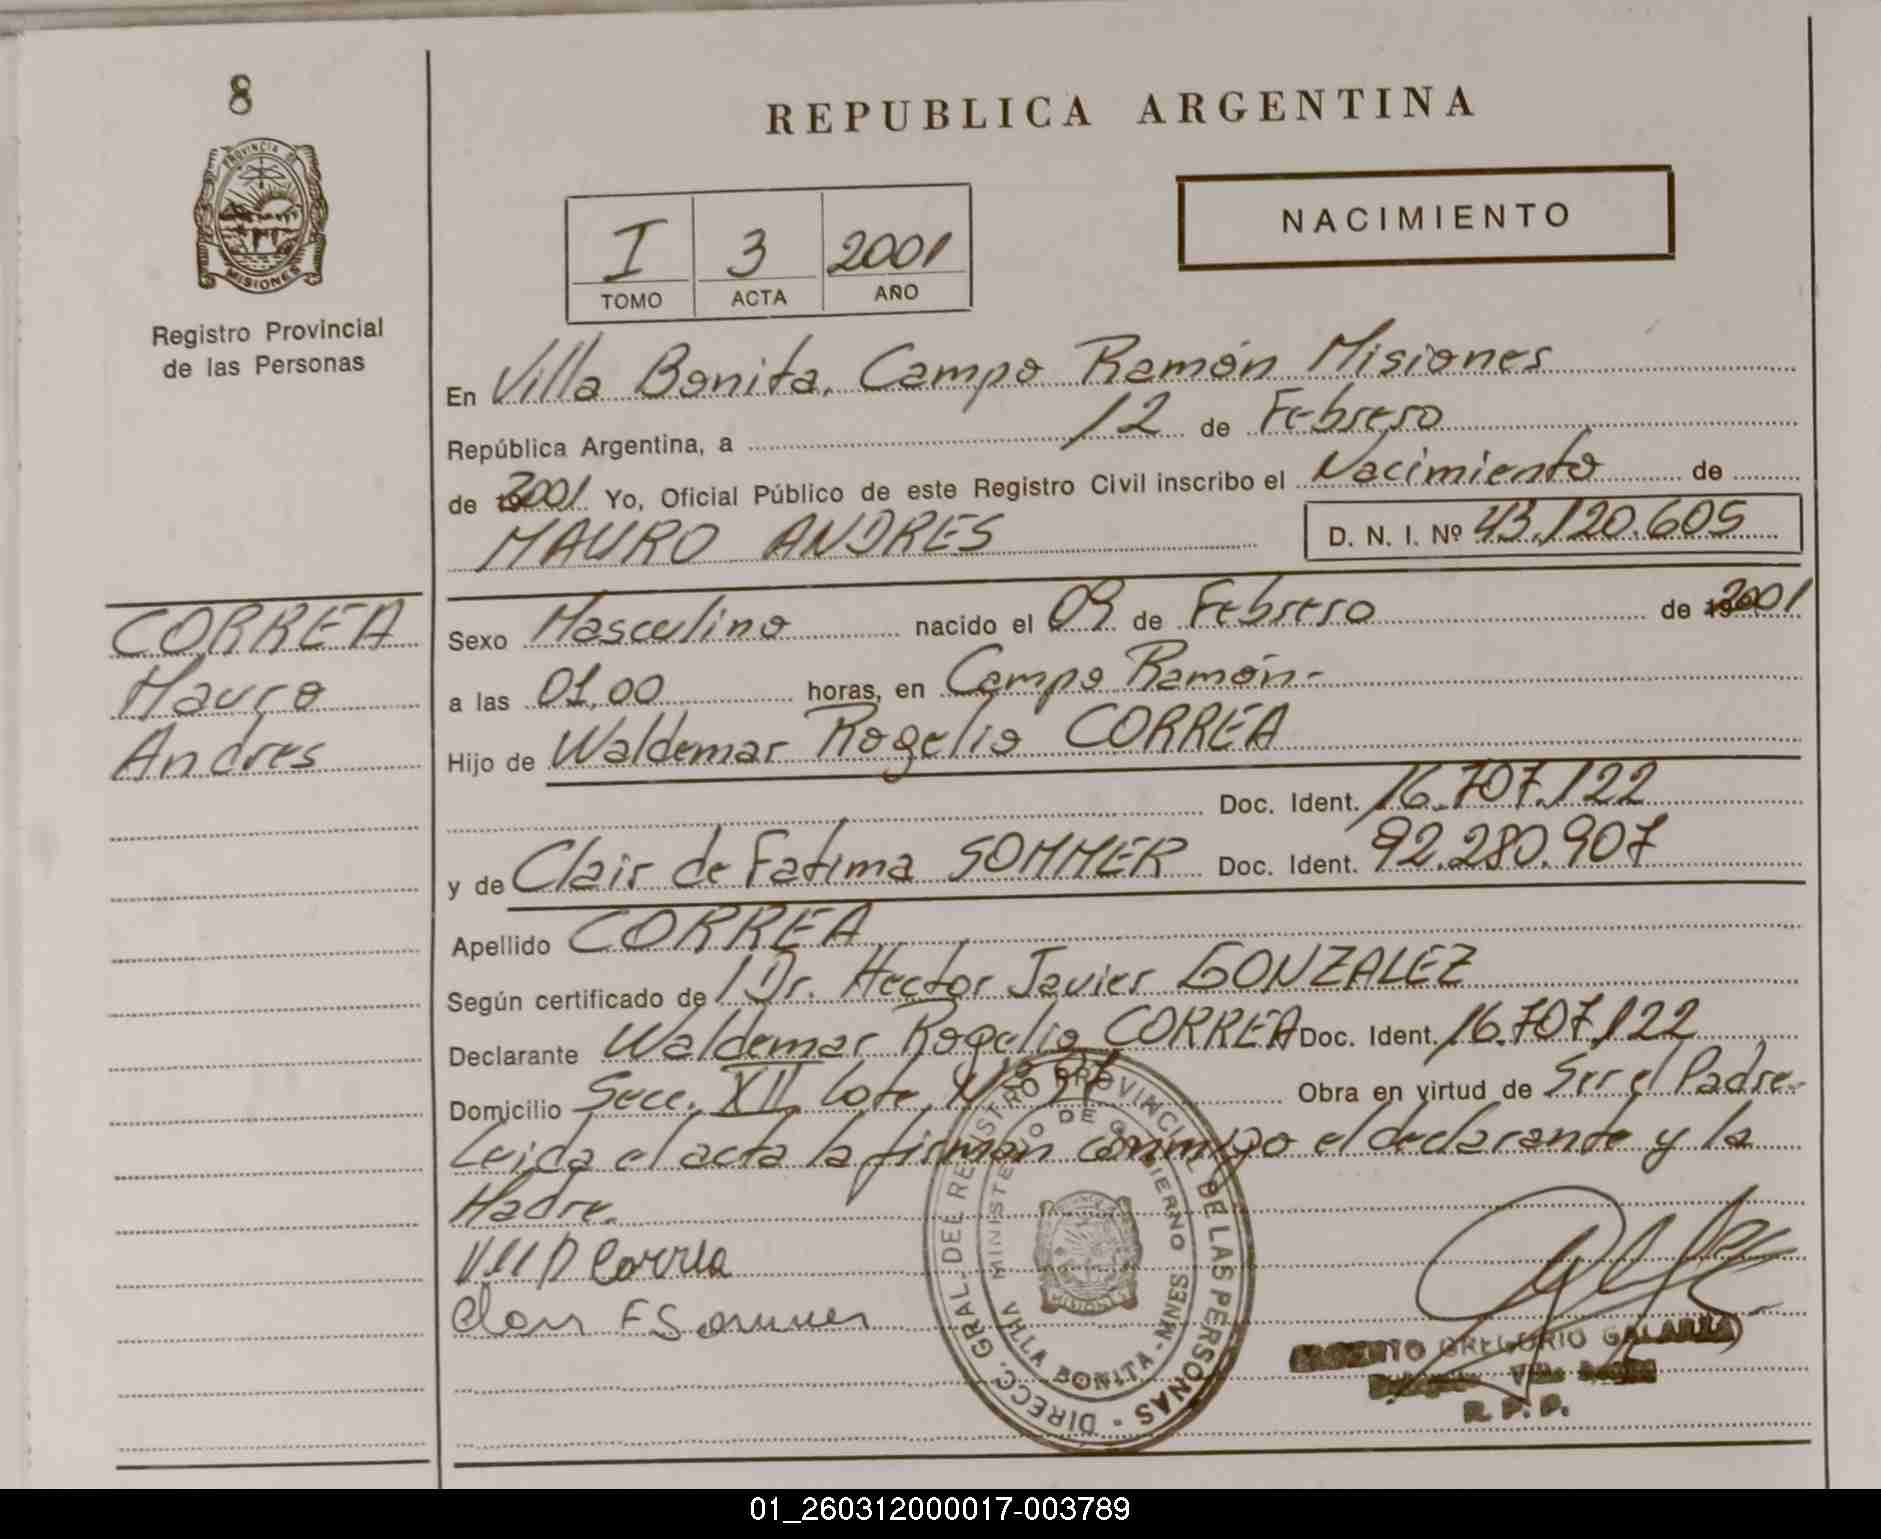 8
PROVINCIA DE
MISIONES
Registro Provincial
de las Personas
REPUBLICA ARGENTINA
NACIMIENTO
I 3 2001
TOMO ACTA AÑO
En Villa Bonita, Campo Ramón Misiones
República Argentina, a 12 de Febrero
de 2001 Yo, Oficial Público de este Registro Civil inscribo el Nacimiento de
MAURO ANDRES D. N. I. Nº 43.120.605
CORREA
Mauro
Andres
Sexo Masculino nacido el 09 de Febrero de 2001
a las 01,00 horas, en Campo Ramón-
Hijo de Waldemar Rogelio CORREA
Doc. Ident. 16.707.122
y de Clair de Fatima SOMMER Doc. Ident. 92.280.907
Apellido CORREA
Según certificado de l Dr. Hector Javier GONZALEZ
Declarante Waldemar Rogelio CORREA Doc. Ident. 16.707.122
Domicilio Secc. XII Lote Nº Obra en virtud de Ser el Padre.-
Leida el acta la firman conmigo el declarante y la
Madre.
Correa
Clair F Sommer
DIRECC. GRAL. DEL REGISTRO PROVINCIAL DE LAS PERSONAS -
MINISTERIO DE GOBIERNO
VILLA BONITA - MNES
MISIONES
GREGORIO GALARZA
Villa
R. P. P.
01_260312000017-003789